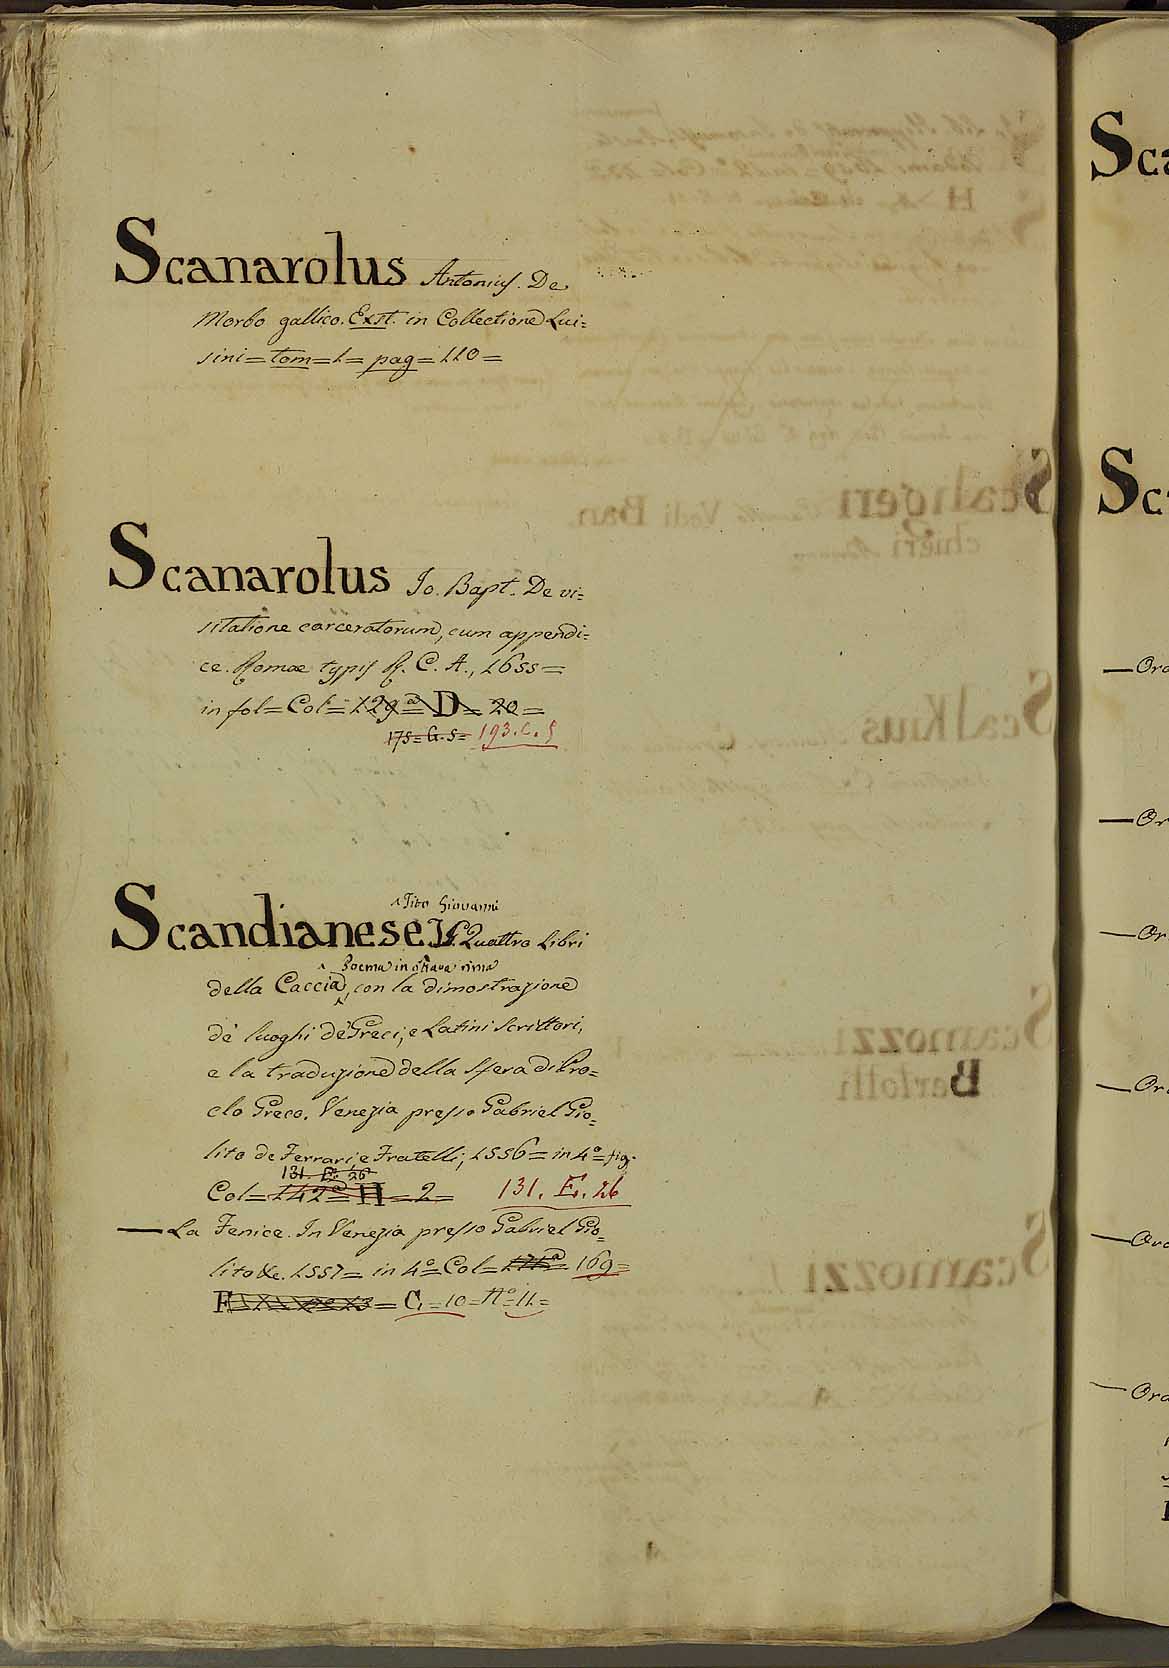 Scanarolus Antonius. De
Morbo gallico. Exst. in Collectione Lui=
sini = tom = 1 = pag = 110 =
Scanarolus Jo. Bapt. De vi=
sitatione carceratorum, cum appendi=
ce. Romae typis R. C. A., 1655 =
in fol = Col = 129ª = D = 20 =
175 = G. 5 = 193. C. 5
^ Tito Giovanni
Scandianese Quattro Libri
^ Poema in ottava rima
della Caccia, con la dimostrazione
de' luoghi de' Greci, e Latini Scrittori,
e la traduzione della Sfera di Pro=
clo Greco. Venezia presso Gabriel Gio=
lito de Ferrari, e Fratelli, 1556 = in 4º = fig.
131. E. 26
Col = 142ª = H = 2 = 131. E. 26
— La Fenice. In Venezia presso Gabriel Gio=
lito &c. 1557 = in 4º = Col = 169 =
F = C. = 10 = Nº = 11 =
Sca
Sc
— Ora
— Or
— Or
— Ora
— Ora
— Ora